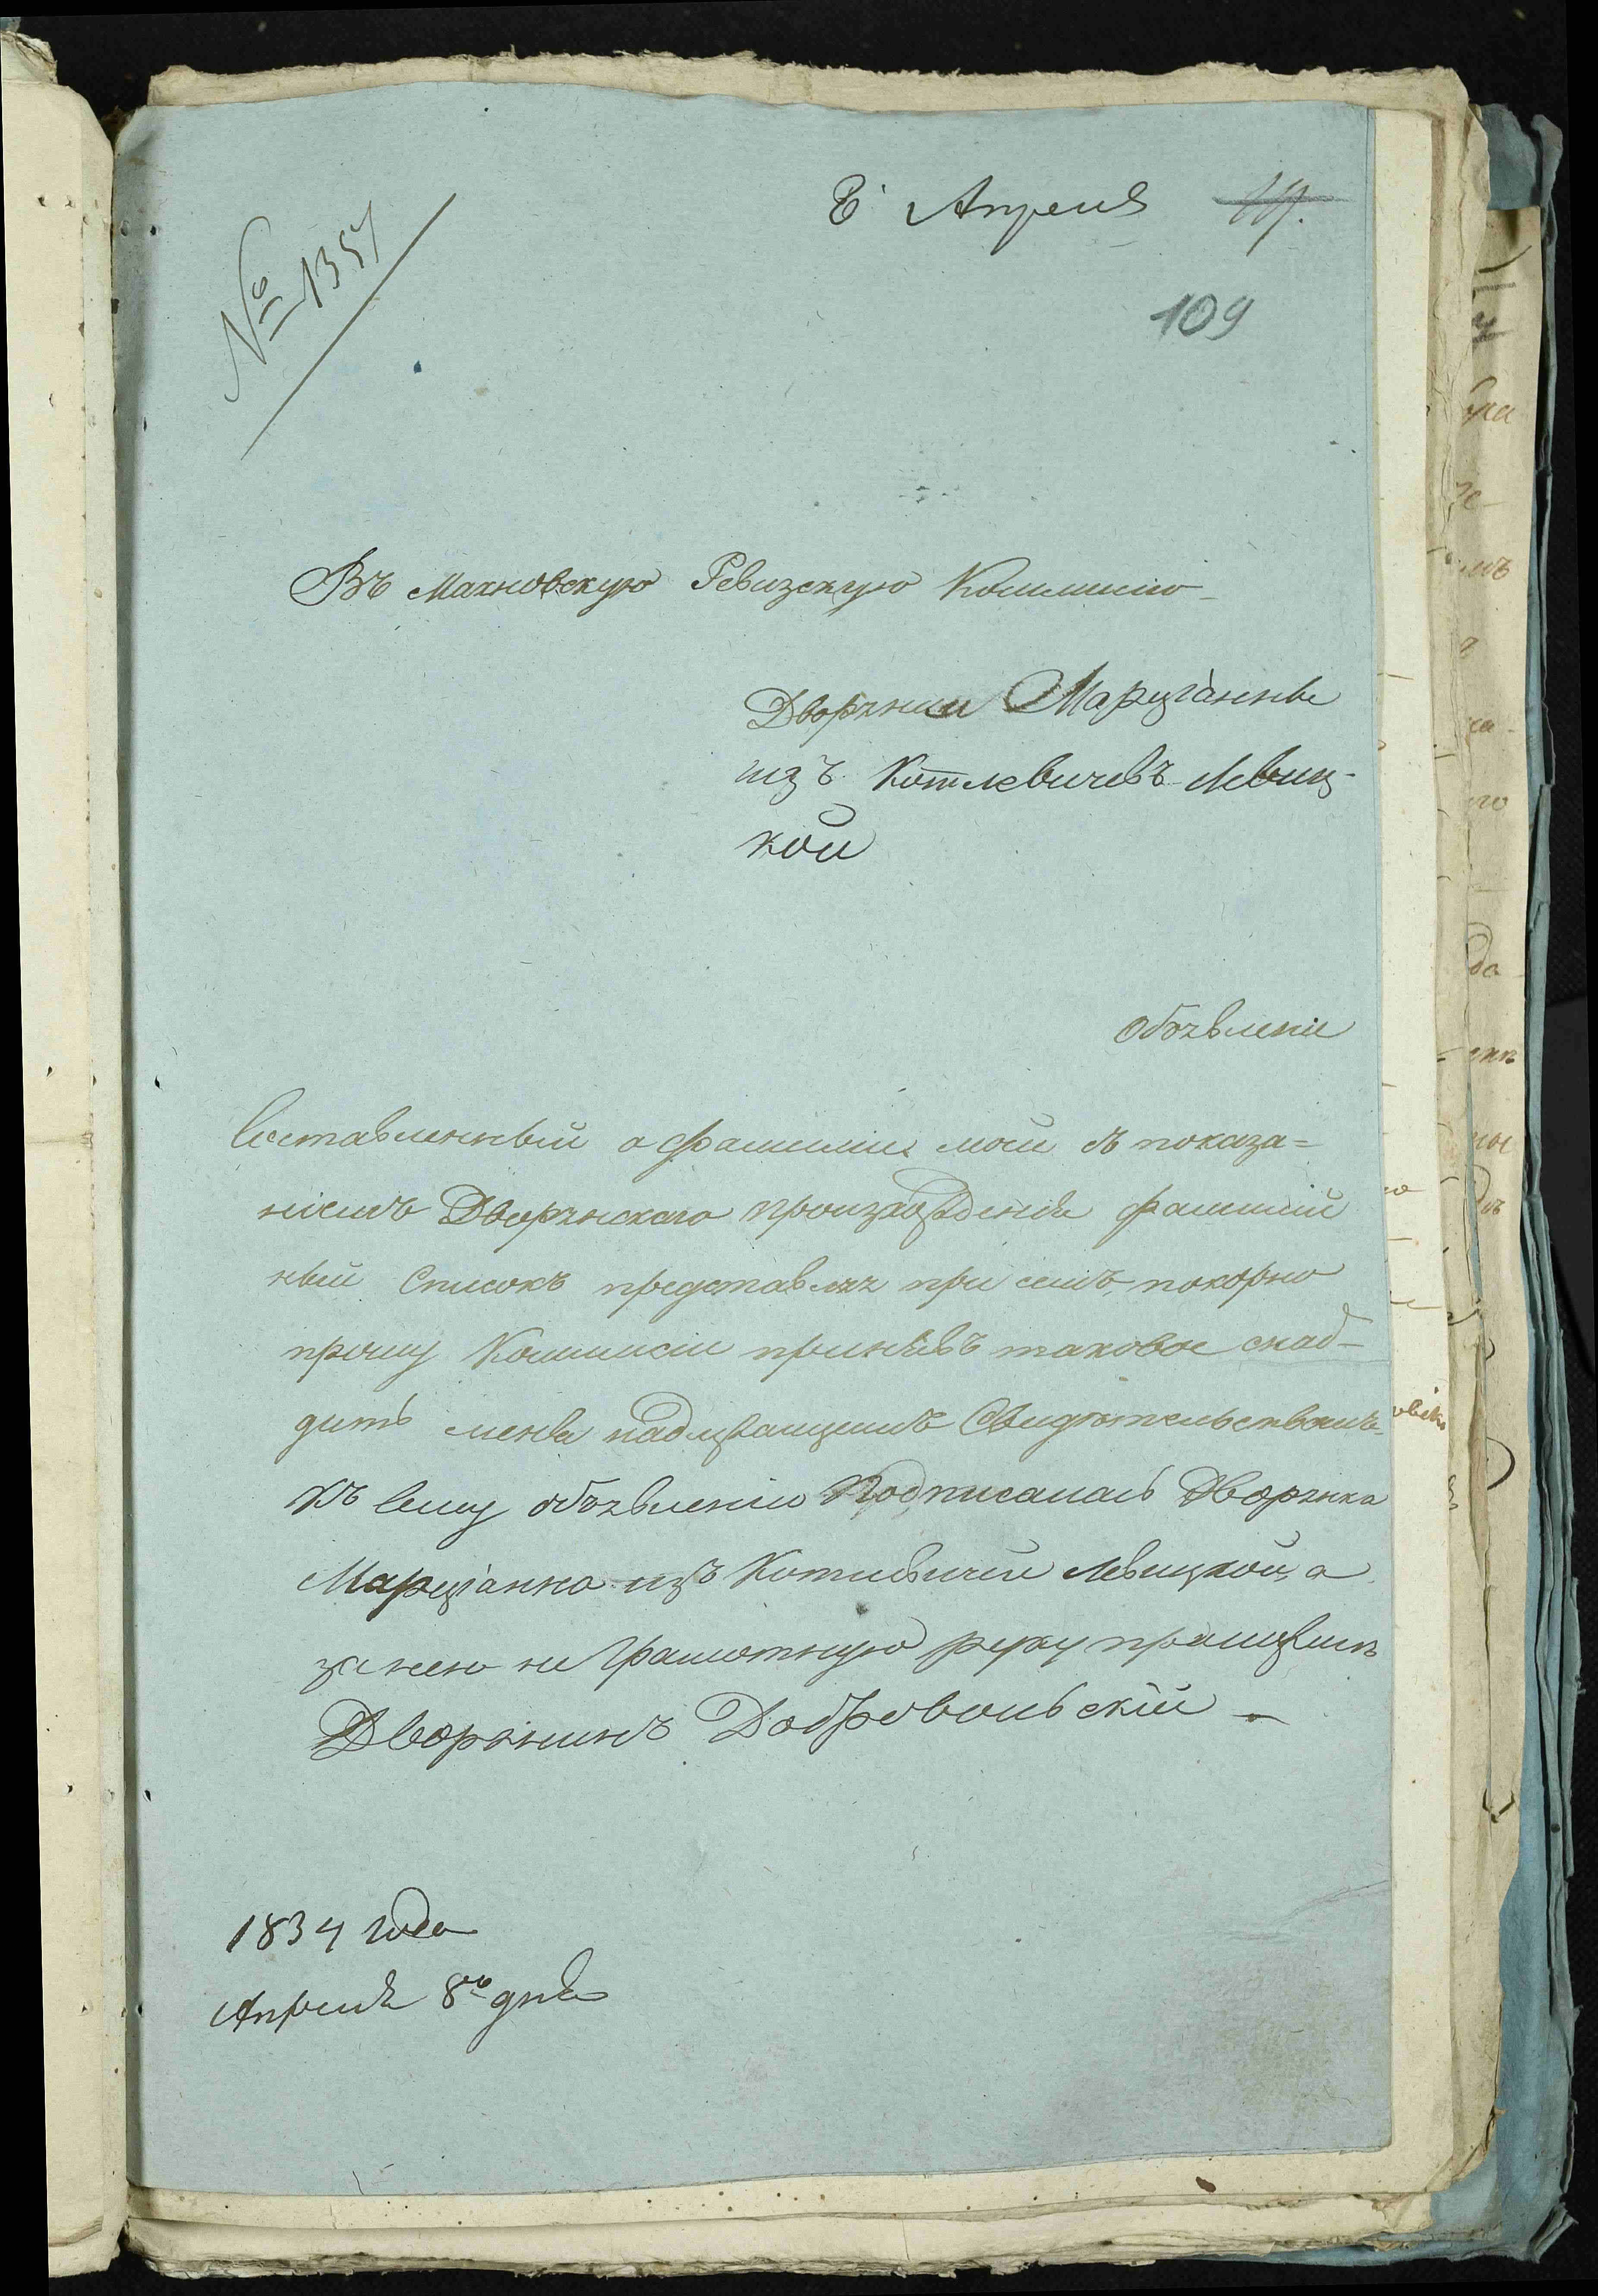 8 Апреля
№ 1357
109
Въ Махновскую Ревизскую Коммисію
Дворянки Марціанны
изъ Котлевичевъ Левиц-
кой
Объявленіе
Составленный о фамиліи моей съ показа=
ніемъ Дворянскаго произхожденія фамилій
ный Списокъ представляя при семъ, покорно
прошу Коммисіи принявъ таковое снаб-
дить меня надлежащимъ Свидѣтельствомъ
Къ сему объявленію Подписалась Дворянка
Марціанна изъ Котлевичей Левицкой, а
за нею не грамотную руку приложилъ
Дворянинъ Добровольскій
1834 года
Апреля 8го дня